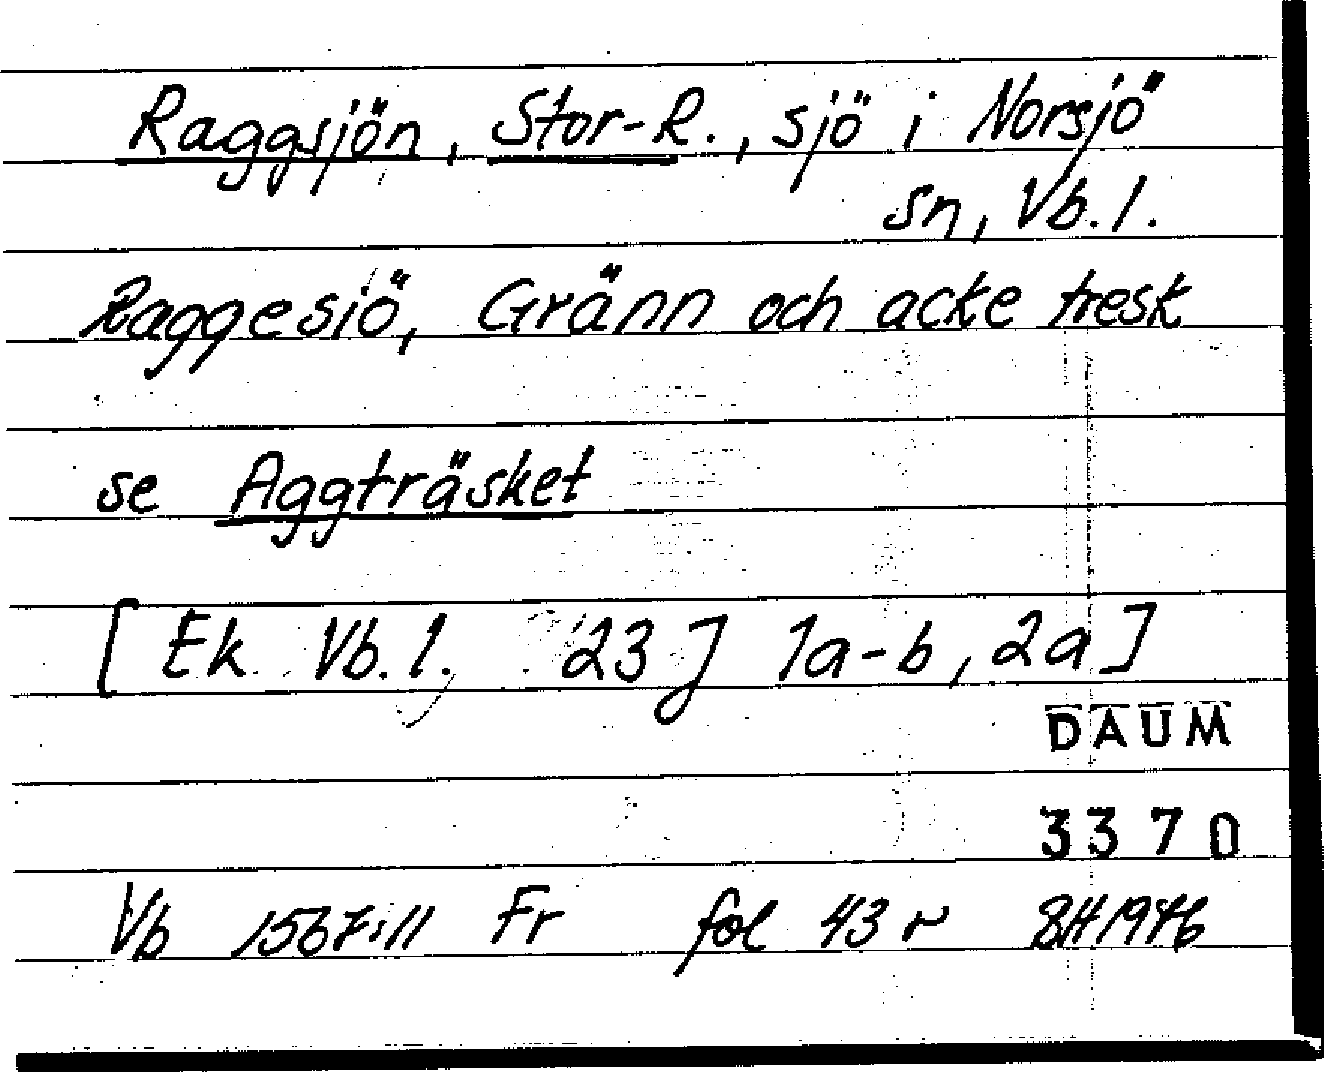 Raggsjön, Stor-R., sjö i Norsjö
sn, Vb. l.
Raggesiö, Gränn och acke tresk
se Aggträsket
[Ek Vb. l. 23] 1a-b, 2a]
DAUM
3370
Vb 1567:11 Fr fol 43 r